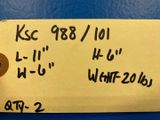 KSC 988/101
L-11" H-6"
W-6" WEIHT-20 lbs
QTY-2